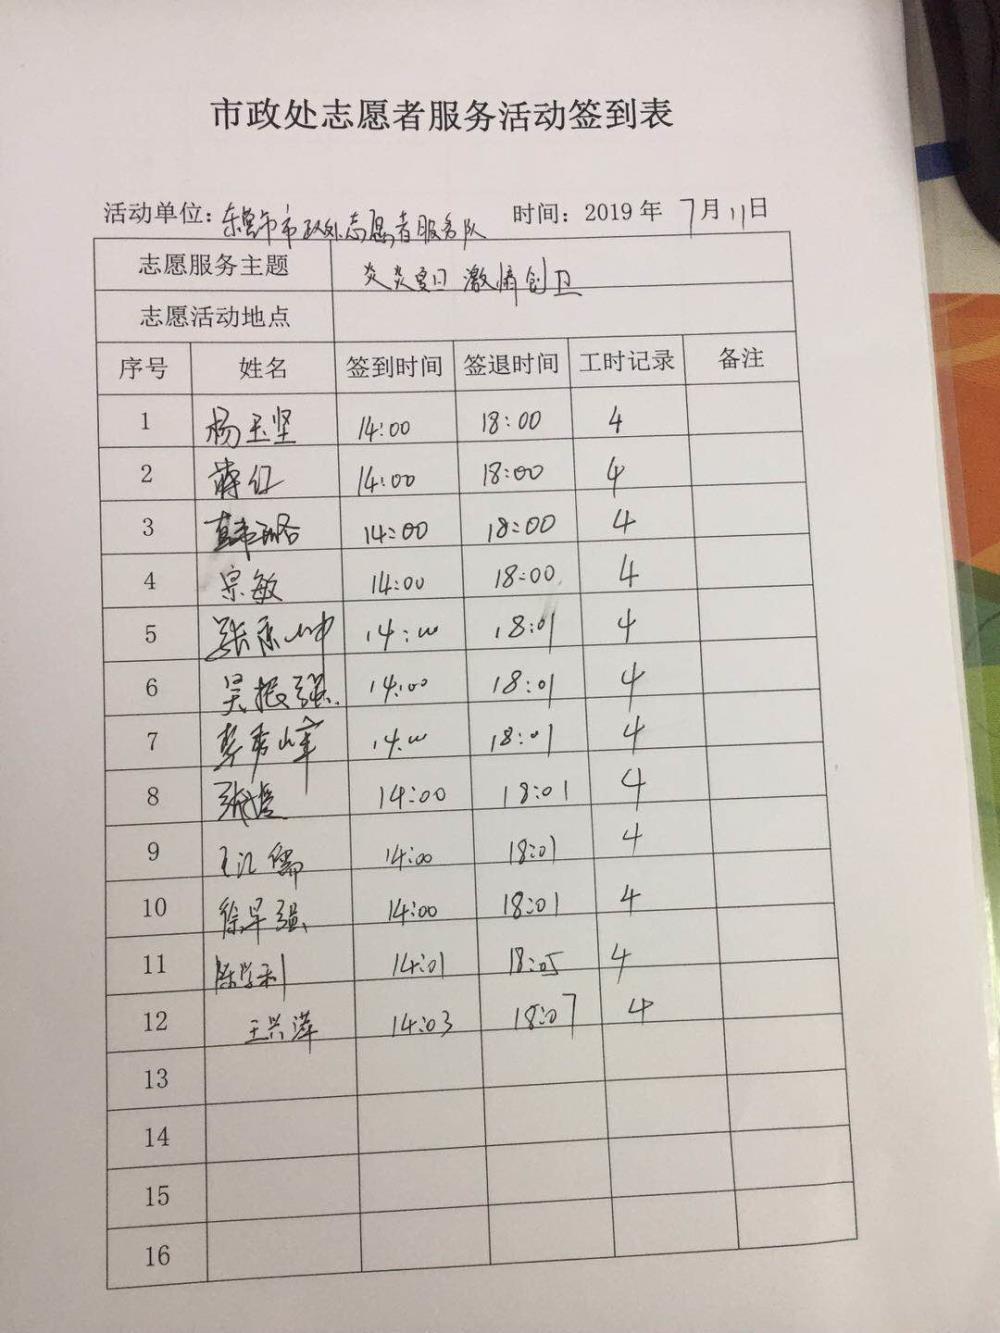 市政处志愿者服务活动签到表
活动单位：东营市市政处志愿者服务队 时间：2019年 7月11日
志愿服务主题 炎炎夏日 激情创卫
志愿活动地点
序号 姓名 签到时间 签退时间 工时记录 备注
1 杨玉坚 14:00 18:00 4
2 蒋红 14:00 18:00 4
3 14:00 18:00 4
4 宗敏 14:00 18:00 4
5 张 14:00 18:01 4
6 吴振强 14:00 18:01 4
7 李秀峰 14:00 18:01 4
8 张 14:00 18:01 4
9 王 儒 14:00 18:01 4
10 徐早强 14:00 18:01 4
11 陈学利 14:01 18:05 4
12 王兴萍 14:03 18:07 4
13
14
15
16